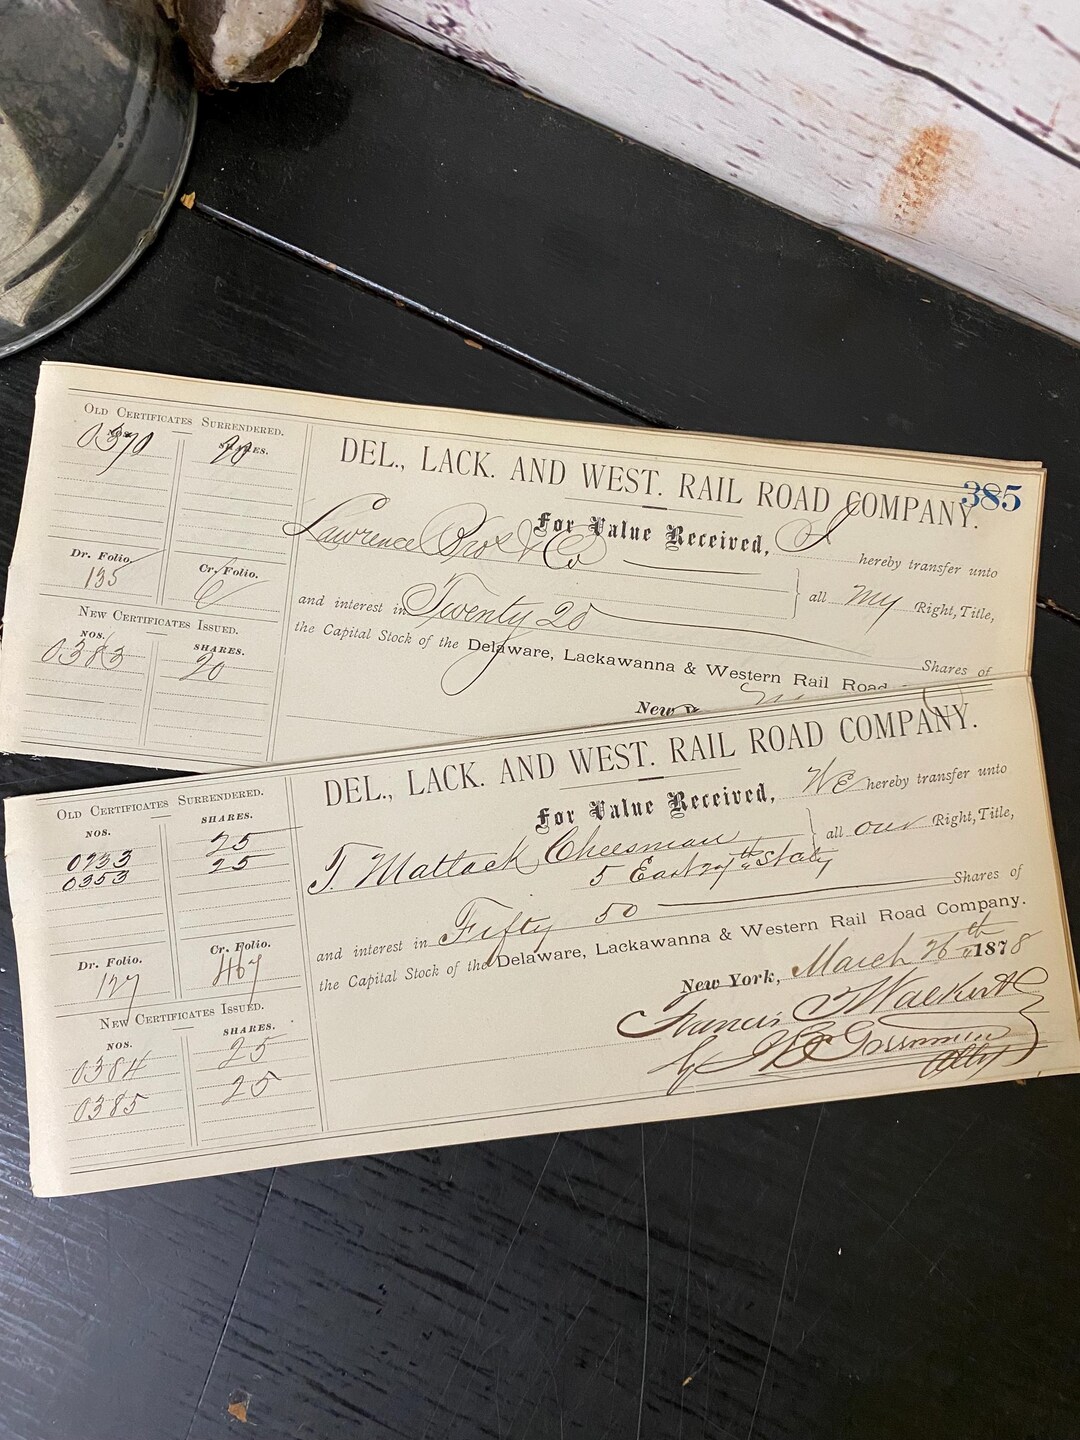 OLD CERTIFICATES SURRENDERED.
NOS. SHARES.
0370 20
Dr. Folio. Cr. Folio.
135
NEW CERTIFICATES ISSUED.
NOS. SHARES.
0383 20
385
DEL., LACK. AND WEST. RAIL ROAD COMPANY.
For Value Received, I hereby transfer unto
Lawrence Bros & Co all my Right, Title,
and interest in Twenty 20 Shares of
the Capital Stock of the Delaware, Lackawanna & Western Rail Road
New
OLD CERTIFICATES SURRENDERED.
NOS. SHARES.
0233 25
0353 25
Dr. Folio. Cr. Folio.
127 467
NEW CERTIFICATES ISSUED.
NOS. SHARES.
0384 25
0385 25
DEL., LACK. AND WEST. RAIL ROAD COMPANY.
For Value Received, We hereby transfer unto
T. Matlack Cheesman all our Right, Title,
5 East
and interest in Fifty 50 Shares of
the Capital Stock of the Delaware, Lackawanna & Western Rail Road Company.
New York, March 26th 1878
Francis
by
Atty